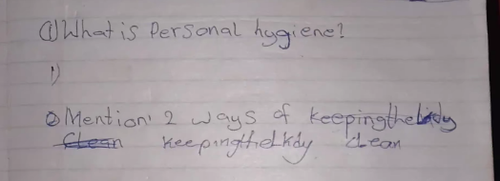 ①What is Personal hygiene?
1)
②Mention 2 ways of keepingthe
keepingthe clean